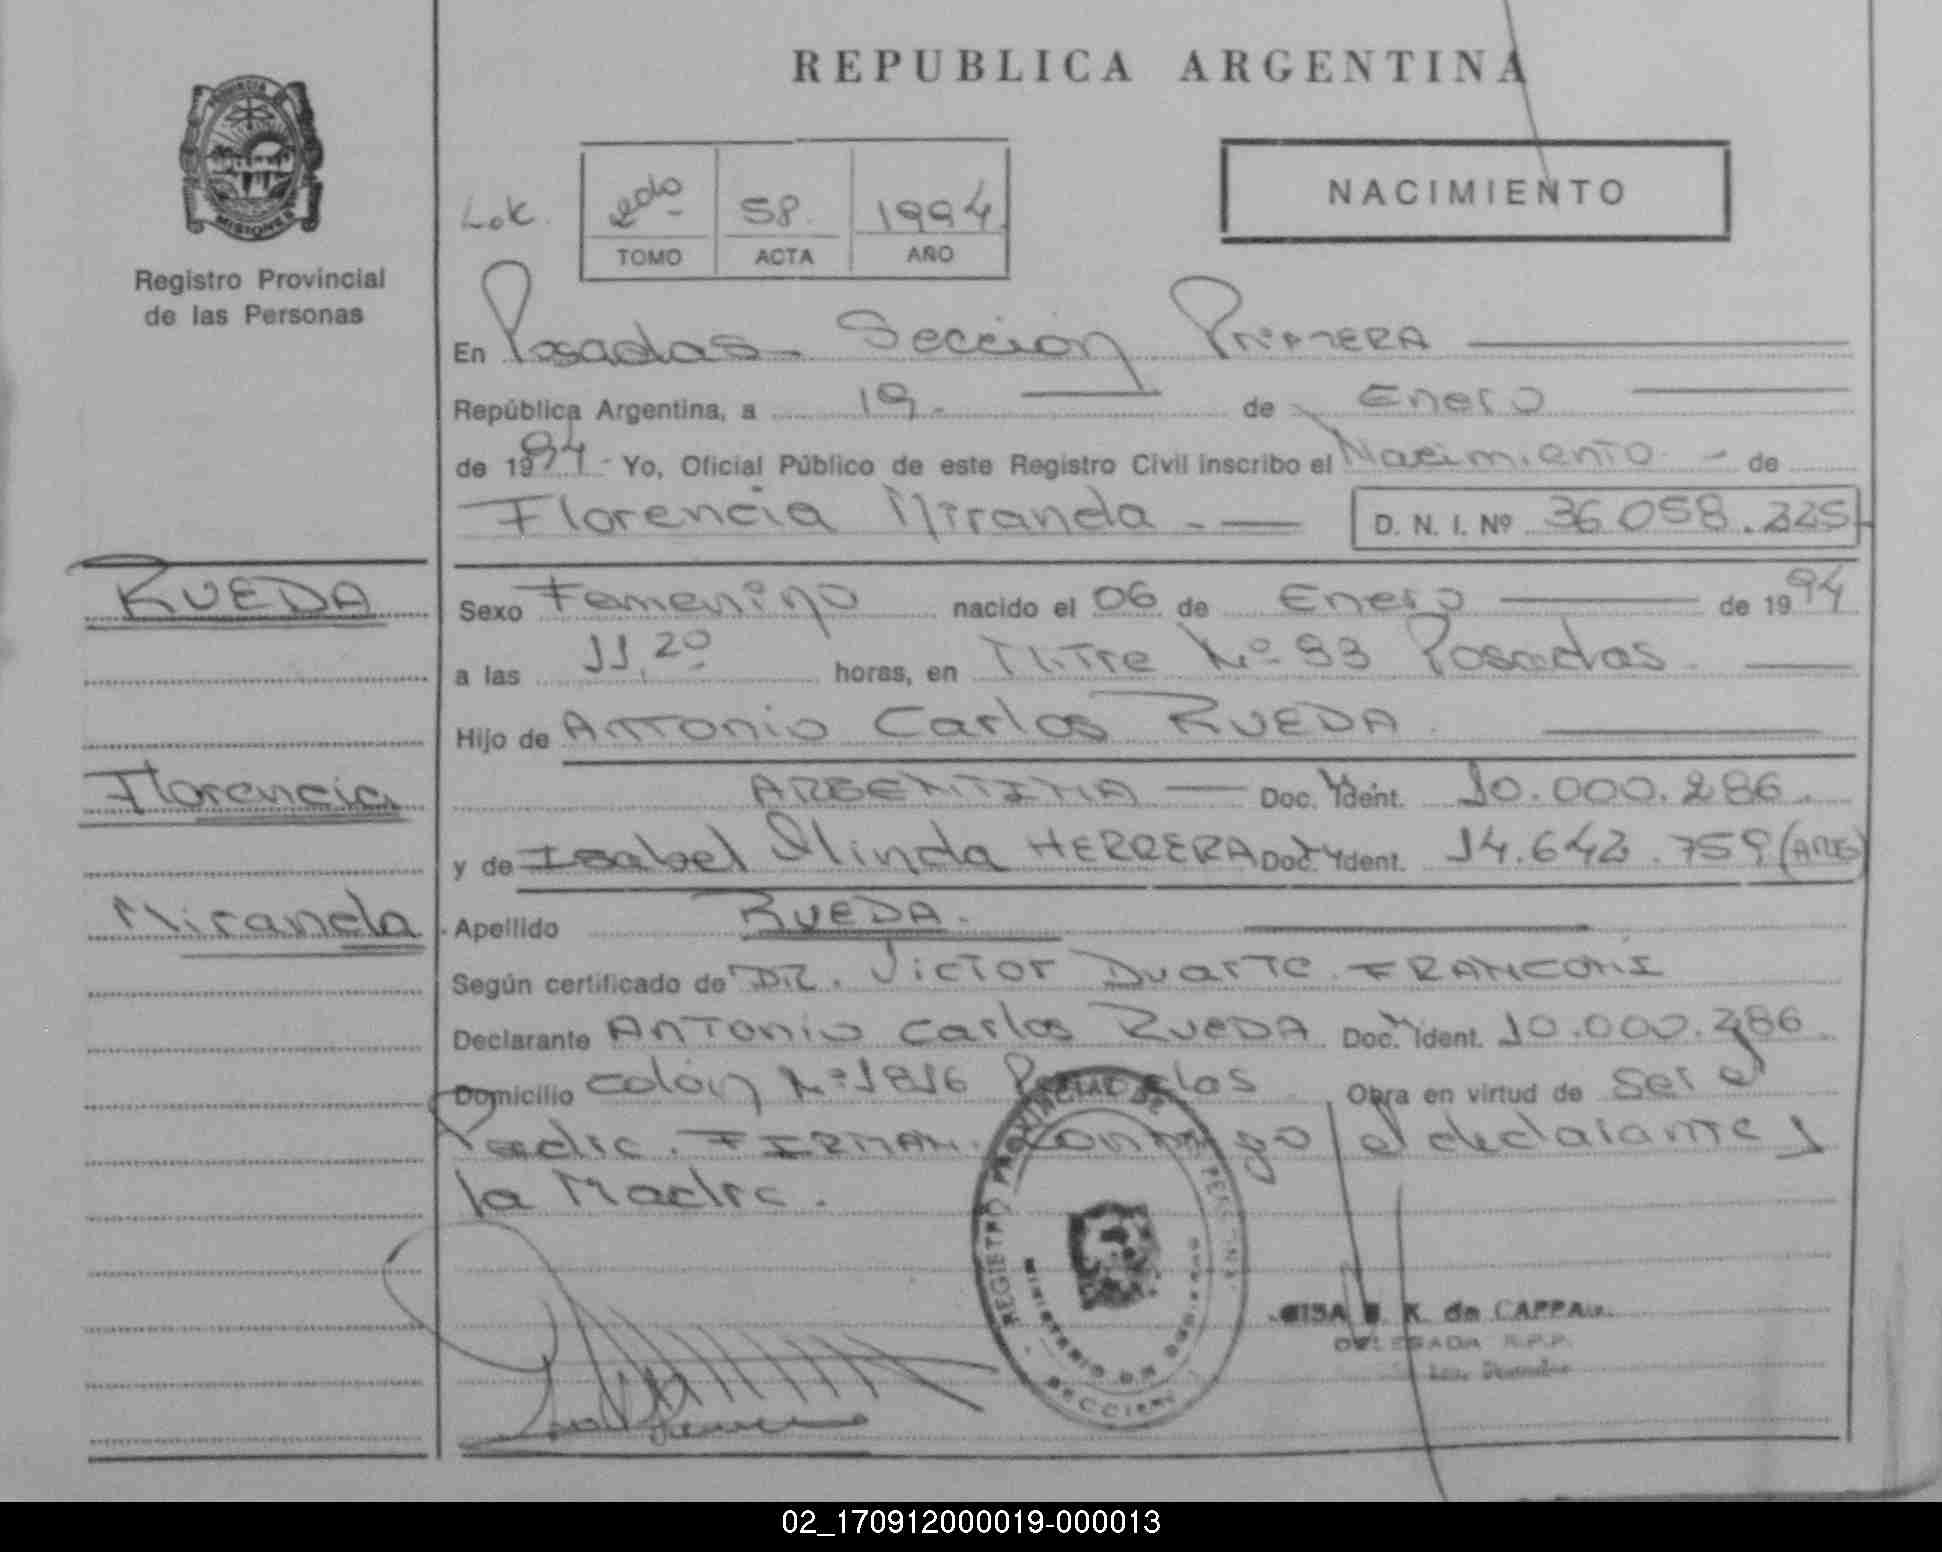 REPUBLICA ARGENTINA
PROVINCIA
MISIONES
Registro Provincial
de las Personas
2do 58. 1994.
TOMO ACTA AÑO
NACIMIENTO
En Posadas Sección Primera
República Argentina, a 19. de Enero
de 1994 - Yo, Oficial Público de este Registro Civil inscribo el Nacimiento - de
Florencia Miranda - D. N. I. Nº 36.058.225
RUEDA
Sexo Femenino nacido el 06 de Enero de 1994
a las 11,20 horas, en Mitre Nº 93 Posadas
Hijo de Antonio Carlos RUEDA
Florencia
ARGENTINA Doc. Ydent. 10.000.286.
y de Isabel Olinda HERRERA Doc. Ydent. 14.642.759 (ARG)
Miranda
Apellido RUEDA.
Según certificado de DR. Victor Duarte
Declarante Antonio Carlos RUEDA Doc. Ident. 10.000.286
Domicilio Colón Nº 1816 Posadas Obra en virtud de ser el
Padre. FIRMAN. Conmigo el declarante y
la Madre.
REGISTRO PROVINCIAL DE
MINISTERIO DE GOBIERNO
SECCION
K. de
DELEGADA R.P.P.
02_170912000019-000013